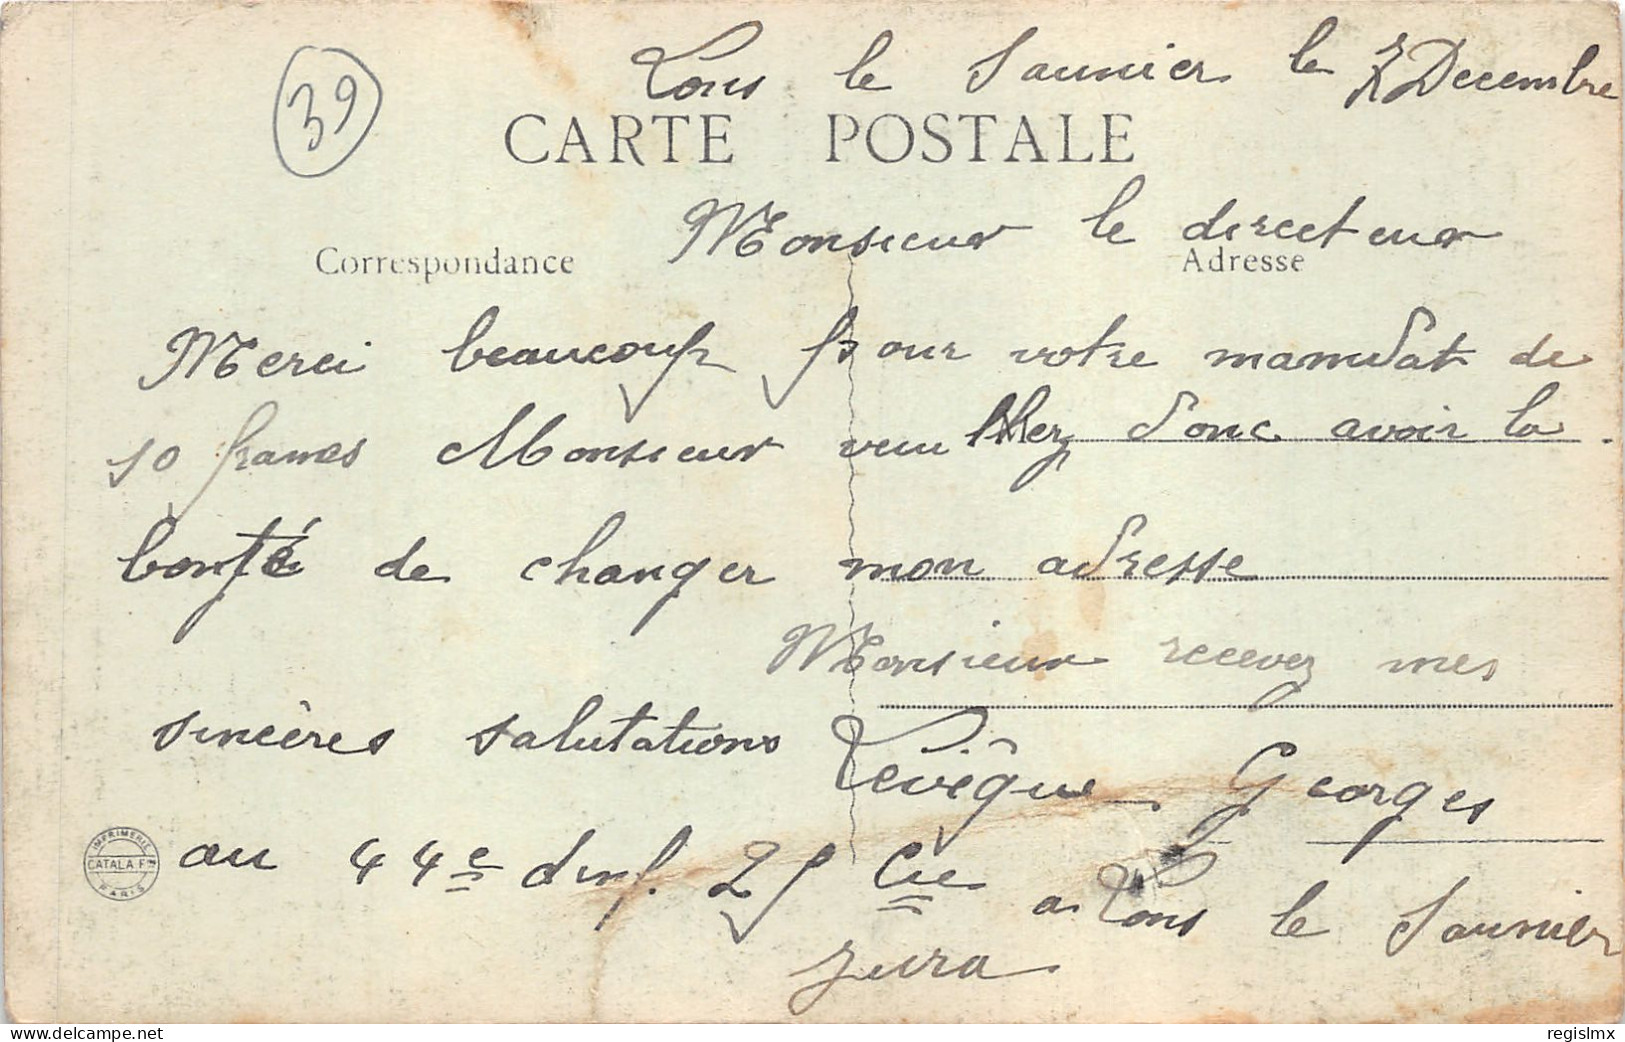 39
Lons le Saunier le 7 Decembre
CARTE POSTALE
Monsieur le directeur
Correspondance
Adresse
Merci beaucoup pour votre mandat de
10 francs Monsieur veuillez donc avoir la
bonté de changer mon adresse
Monsieur recevez mes
sincères salutations Levêque Georges
au 44e d'inf. 25 Cie a Lons le Saunier
Jura
IMPRIMERIE
CATALA FR
PARIS
www.delcampe.net
regislmx